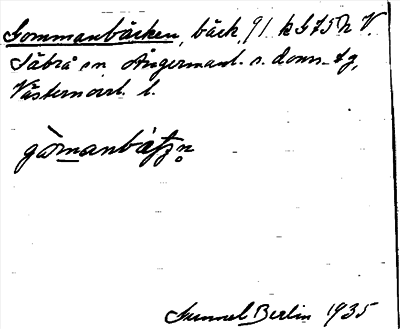 Sommanbäcken, bäck, 91 k G 75 h V.
Säbrå sn Ångermanl. s. doms-tg,
Västernorrl. l.
Gunnel Berlin 1935